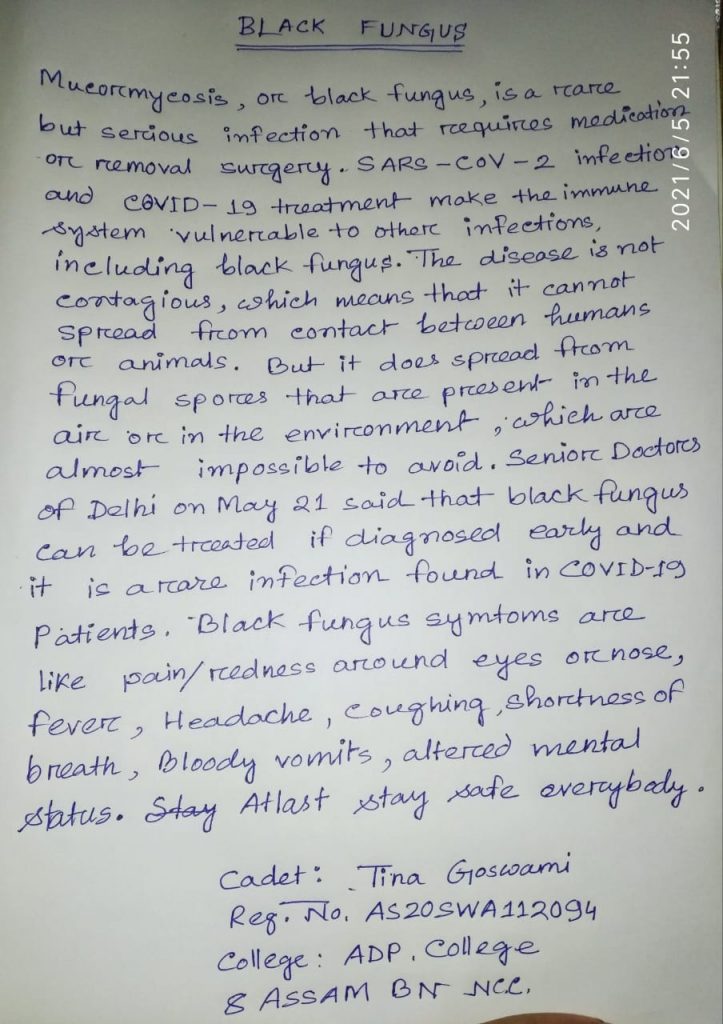 BLACK FUNGUS
Mucormycosis, or black fungus, is a rare
but serious infection that requires medication
or removal surgery. SARS-COV-2 infection
and COVID-19 treatment make the immune
system vulnerable to other infections,
including black fungus. The disease is not
contagious, which means that it cannot
spread from contact between humans
or animals. But it does spread from
fungal spores that are present in the
air or in the environment, which are
almost impossible to avoid. Senior Doctors
of Delhi on May 21 said that black fungus
can be treated if diagnosed early and
it is a rare infection found in COVID-19
Patients. Black fungus symtoms are
like pain/redness around eyes or nose,
fever, Headache, coughing, shortness of
breath, Bloody vomits, altered mental
status. Stay Atlast stay safe everybody.
Cadet: Tina Goswami
Reg. No. AS20SWA112094
College: ADP. College
8 ASSAM BN NCC.
2021/6/5 21:55